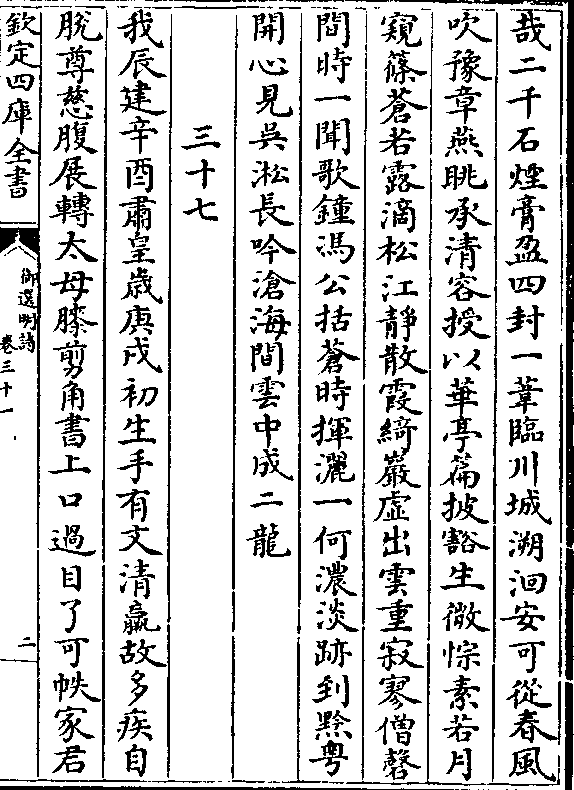 哉二千石煙膏盈四封一葦臨川城溯洄安可從春風
吹豫章燕眺承清容授以華亭篇披豁生微悰素若月
窺篠蒼若露滴松江靜散霞綺巖虛出雲重寂寥僧磬
間時一聞歌鐘馮公括蒼時揮灑一何濃淡跡到黟粵
開心見吳淞長吟滄海間雲中成二龍
三十七
我辰建辛酉肅皇歲庚戌初生手有文清羸故多疾自
脫尊慈腹展轉太母膝剪角書上口過目了可帙家君
欽定四庫全書
御選明詩
卷三十一
二